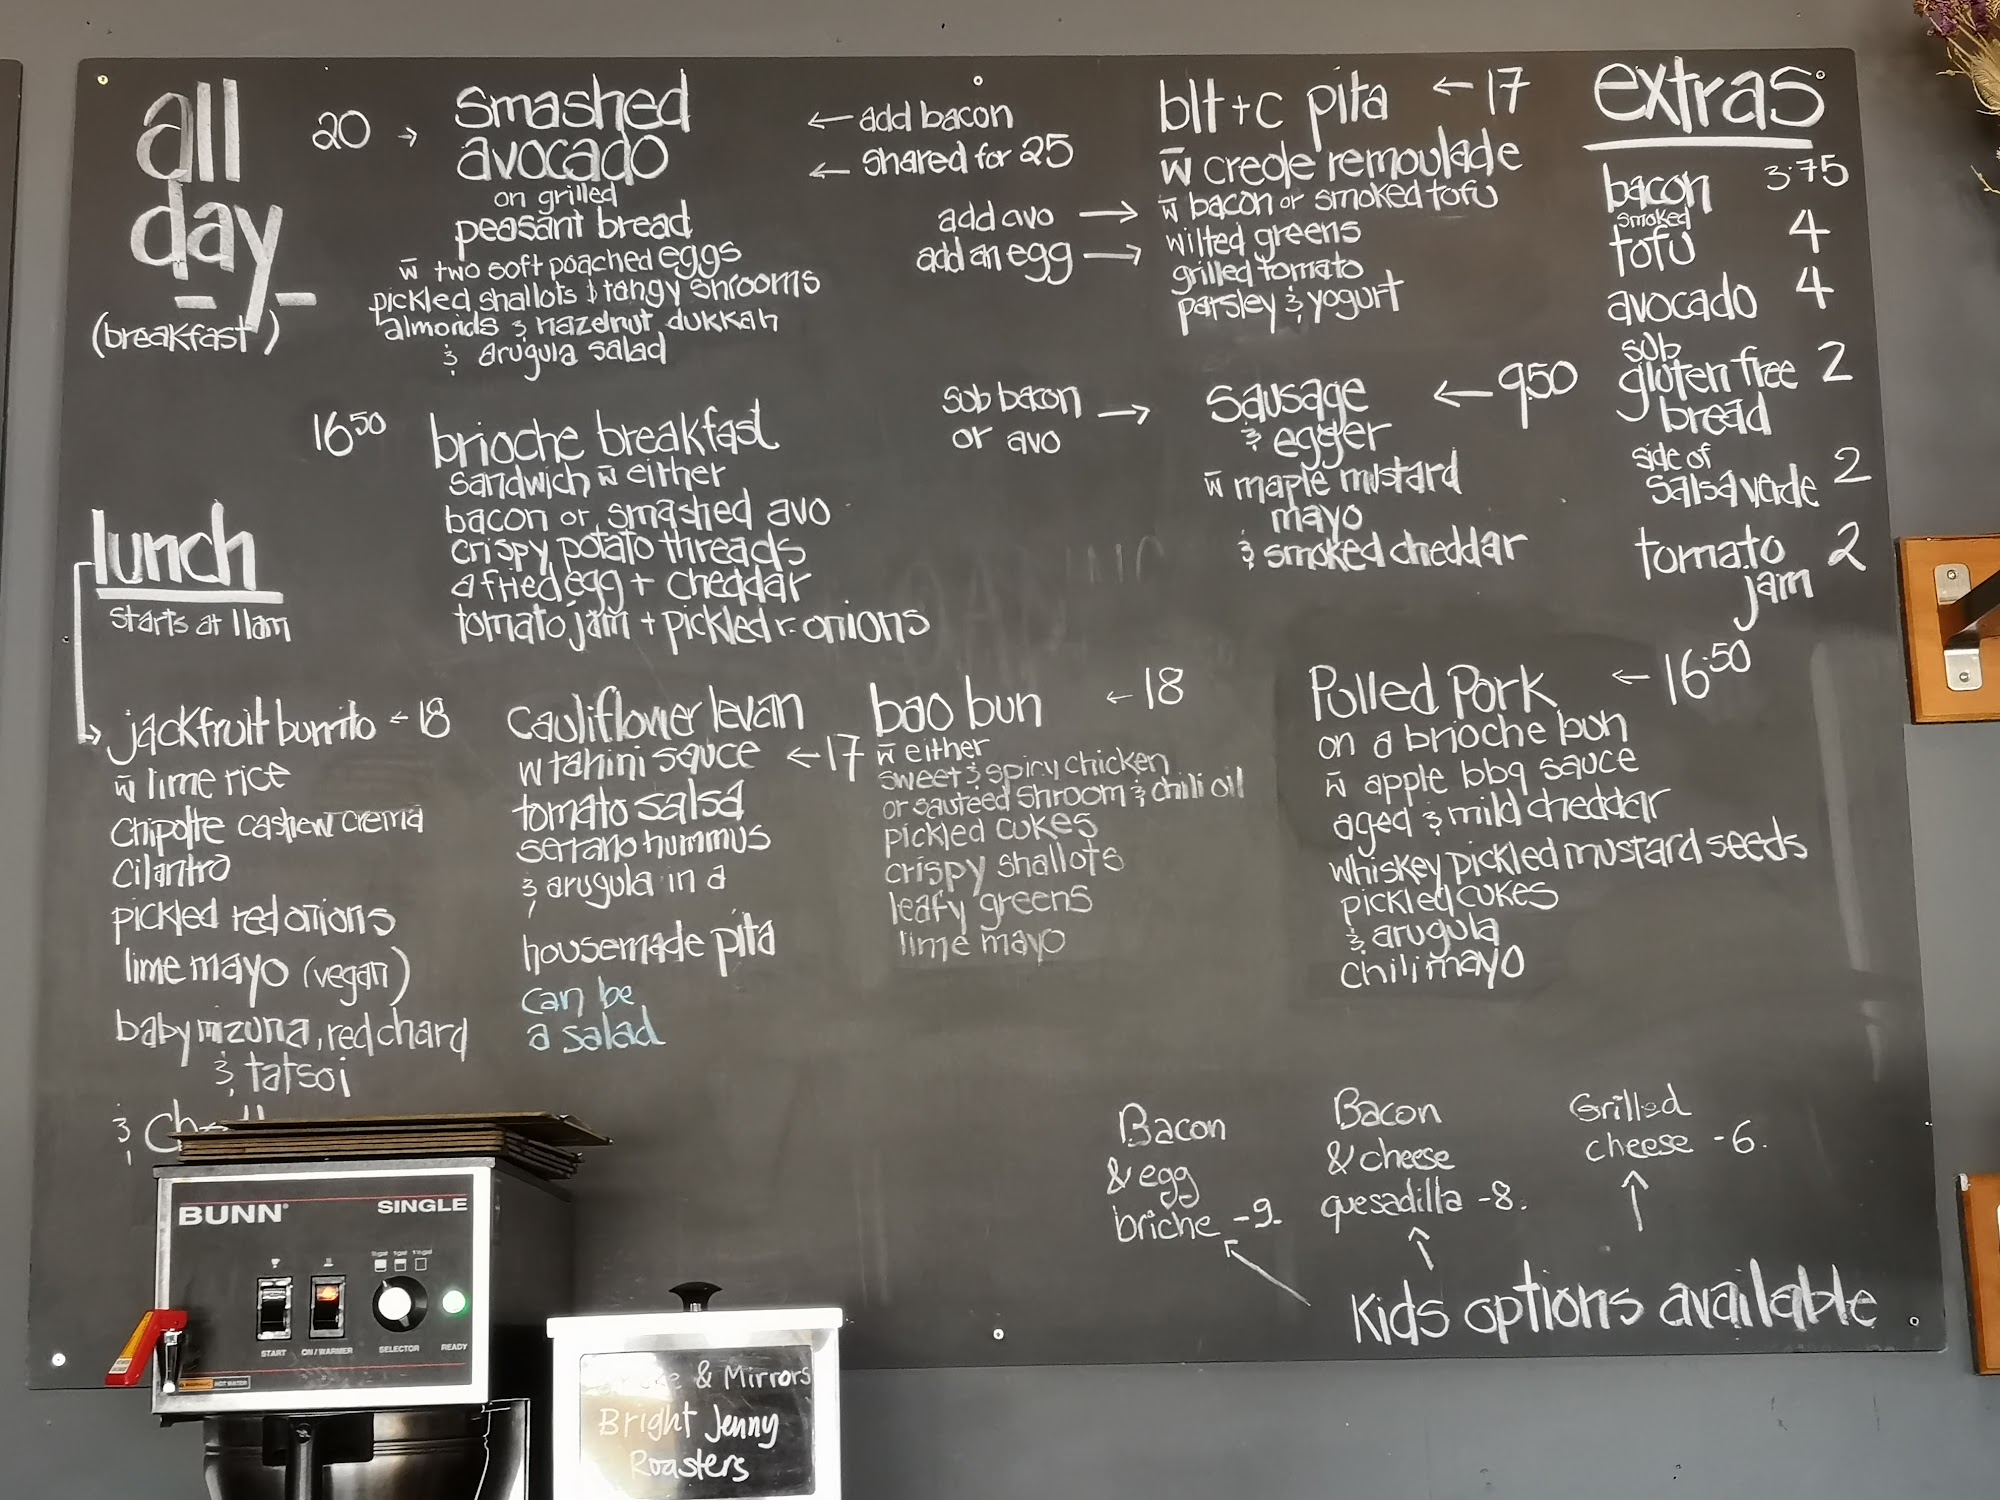 all
day
(breakfast)
20 → smashed
avocado
on grilled
peasant bread
w̄ two soft poached eggs
pickled shallots & tangy shrooms
almonds & hazelnut dukkah
& arugula salad
← add bacon
← shared for 25
blt+c pita ← 17
w̄ creole remoulade
w̄ bacon or smoked tofu
wilted greens
grilled tomato
parsley & yogurt
add avo →
add an egg →
16 50 brioche breakfast
sandwich w̄ either
bacon or smashed avo
crispy potato threads
a fried egg + cheddar
tomato jam + pickled r. onions
sub bacon →
or avo
sausage ← 9.50
& egger
w̄ maple mustard
mayo
& smoked cheddar
extras
bacon 3.75
smoked
tofu 4
avocado 4
sub
gluten free 2
bread
side of
salsa verde 2
tomato 2
jam
lunch
starts at 11am
jackfruit burrito ← 18
w̄ lime rice
chipotle cashew crema
cilantro
pickled red onions
lime mayo (vegan)
baby mizuna, red chard
& tatsoi
&
cauliflower levan
w tahini sauce ← 17
tomato salsa
serrano hummus
& arugula in a
housemade pita
can be
a salad
bao bun ← 18
w̄ either
sweet & spicy chicken
or sauteed shroom & chili oil
pickled cukes
crispy shallots
leafy greens
lime mayo
Pulled Pork ← 16.50
on a brioche bun
w̄ apple bbq sauce
aged & mild cheddar
whiskey pickled mustard seeds
pickled cukes
& arugula
chili mayo
Bacon
& egg
briche -9-
Bacon
& cheese
quesadilla -8.
Grilled
cheese -6.
Kids options available
BUNN SINGLE
START ON/WARMER SELECTOR READY
& Mirrors
Bright Jenny
Roasters